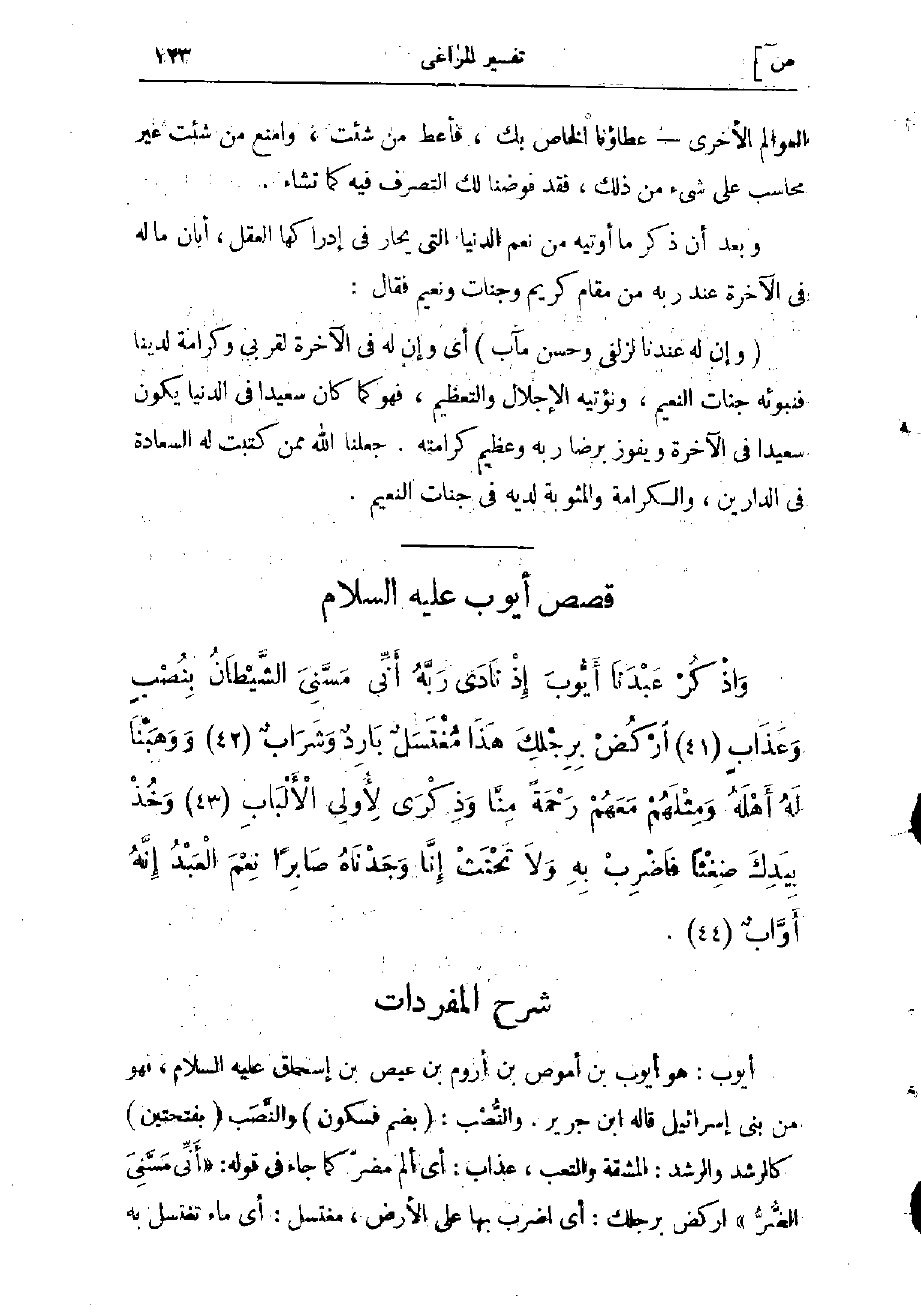 ص] تفسير المراغى ١٢٣
العوالم الأخرى — عطاؤنا الخاص بك ، فأعط من شئت ، وامنع من شئت غير
محاسب على شىء من ذلك ، فقد فوضنا لك التصرف فيه كما تشاء .
وبعد أن ذكر ما أوتيه من نعم الدنيا التى يحار فى إدراكها العقل ، أبان ماله
فى الآخرة عند ربه من مقام كريم وجنات ونعيم فقال :
( وإن له عندنا لزلفى وحسن مآب ) أى وإن له فى الآخرة لقربي وكرامة لدينا
فنبوئه جنات النعيم ، ونؤتيه الإجلال والتعظيم ، فهو كما كان سعيدا فى الدنيا يكون
سعيدا فى الآخرة ويفوز برضا ربه وعظيم كرامته . جعلنا الله ممن كتبت له السعادة
فى الدارين ، والكرامة والمثوبة لديه فى جنات النعيم .
قصص أيوب عليه السلام
وَاذْكُرْ عَبْدَنَا أَيُّوبَ إِذْ نَادَى رَبَّهُ أَنِّى مَسَّنِىَ الشَّيْطَانُ بِنُصْبٍ
وَعَذَابٍ (٤١) أرْكُضْ بِرِجْلِكَ هَذَا مُغْتَسَلٌ بَارِدٌ وَشَرَابٌ (٤٢) وَوَهَبْنَا
لَهُ أَهْلَهُ وَمِثْلَهُمْ مَعَهُمْ رَحْمَةً مِنَّا وَذِكْرَى لِأُولِى الْأَلْبَابِ (٤٣) وَخُذْ
بِيَدِكَ ضِغْثًا فَاضْرِبْ بِهِ وَلاَ تَحْنَثْ إِنَّا وَجَدْنَاهُ صَابِرًا نِعْمَ الْعَبْدُ إِنَّهُ
أَوَّابٌ (٤٤) .
شرح المفردات
أيوب : هو أيوب بن أموص بن أروم بن عيص بن إسحاق عليه السلام ، فهو
من بنى إسرائيل قاله ابن جرير . والنُّصْب : ( بضم فسكون ) والنَّصَب ( بفتحتين )
كالرشد والرشد : المشقة والتعب ، عذاب : أى ألم مضرّ كما جاء فى قوله: «أَنِّى مَسَّنِىَ
الضُّرُّ » اركض برجلك : أى اضرب بها على الأرض ، مغتسل : أى ماء تغتسل به